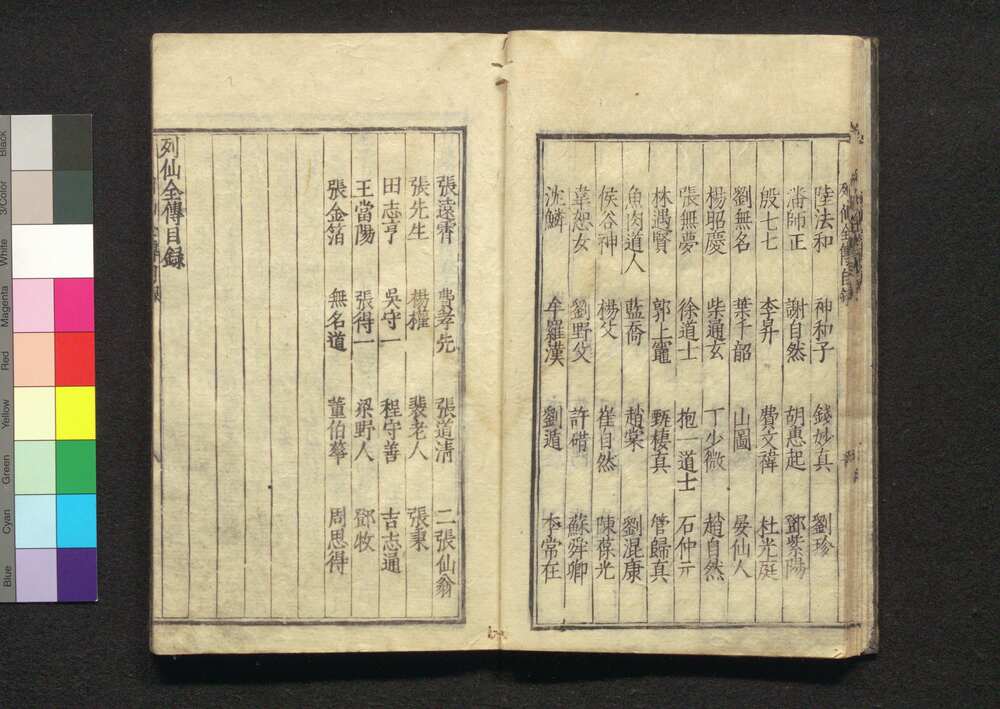 陸法和 神和子 錢妙真 劉珍
潘師正 謝自然 胡惠起 鄧紫陽
殷七七 李昇 費文禕 杜光庭
劉無名 葉千韶 山圖 晏仙人
楊昭慶 柴通玄 丁少微 趙自然
張無夢 徐道士 抱一道士 石仲元
林遇賢 郭上竈 甄棲真 管歸真
魚肉道人 藍喬 趙棠 劉混康
侯谷神 楊父 崔自然 陳葆光
韋恕女 劉野父 許碏 蘇舜卿
沈麟 牟羅漢 劉遁 李常在
張遠霄 費孝先 張道清 二張仙翁
張先生 楊權 裴老人 張秉
田志亨 吳守一 程守善 吉志通
王當陽 張得一 梁野人 鄧牧
張金箔 無名道 董伯華 周思得
列仙全傳目録
Black
3/Color
White
Magenta
Red
Yellow
Green
Cyan
Blue